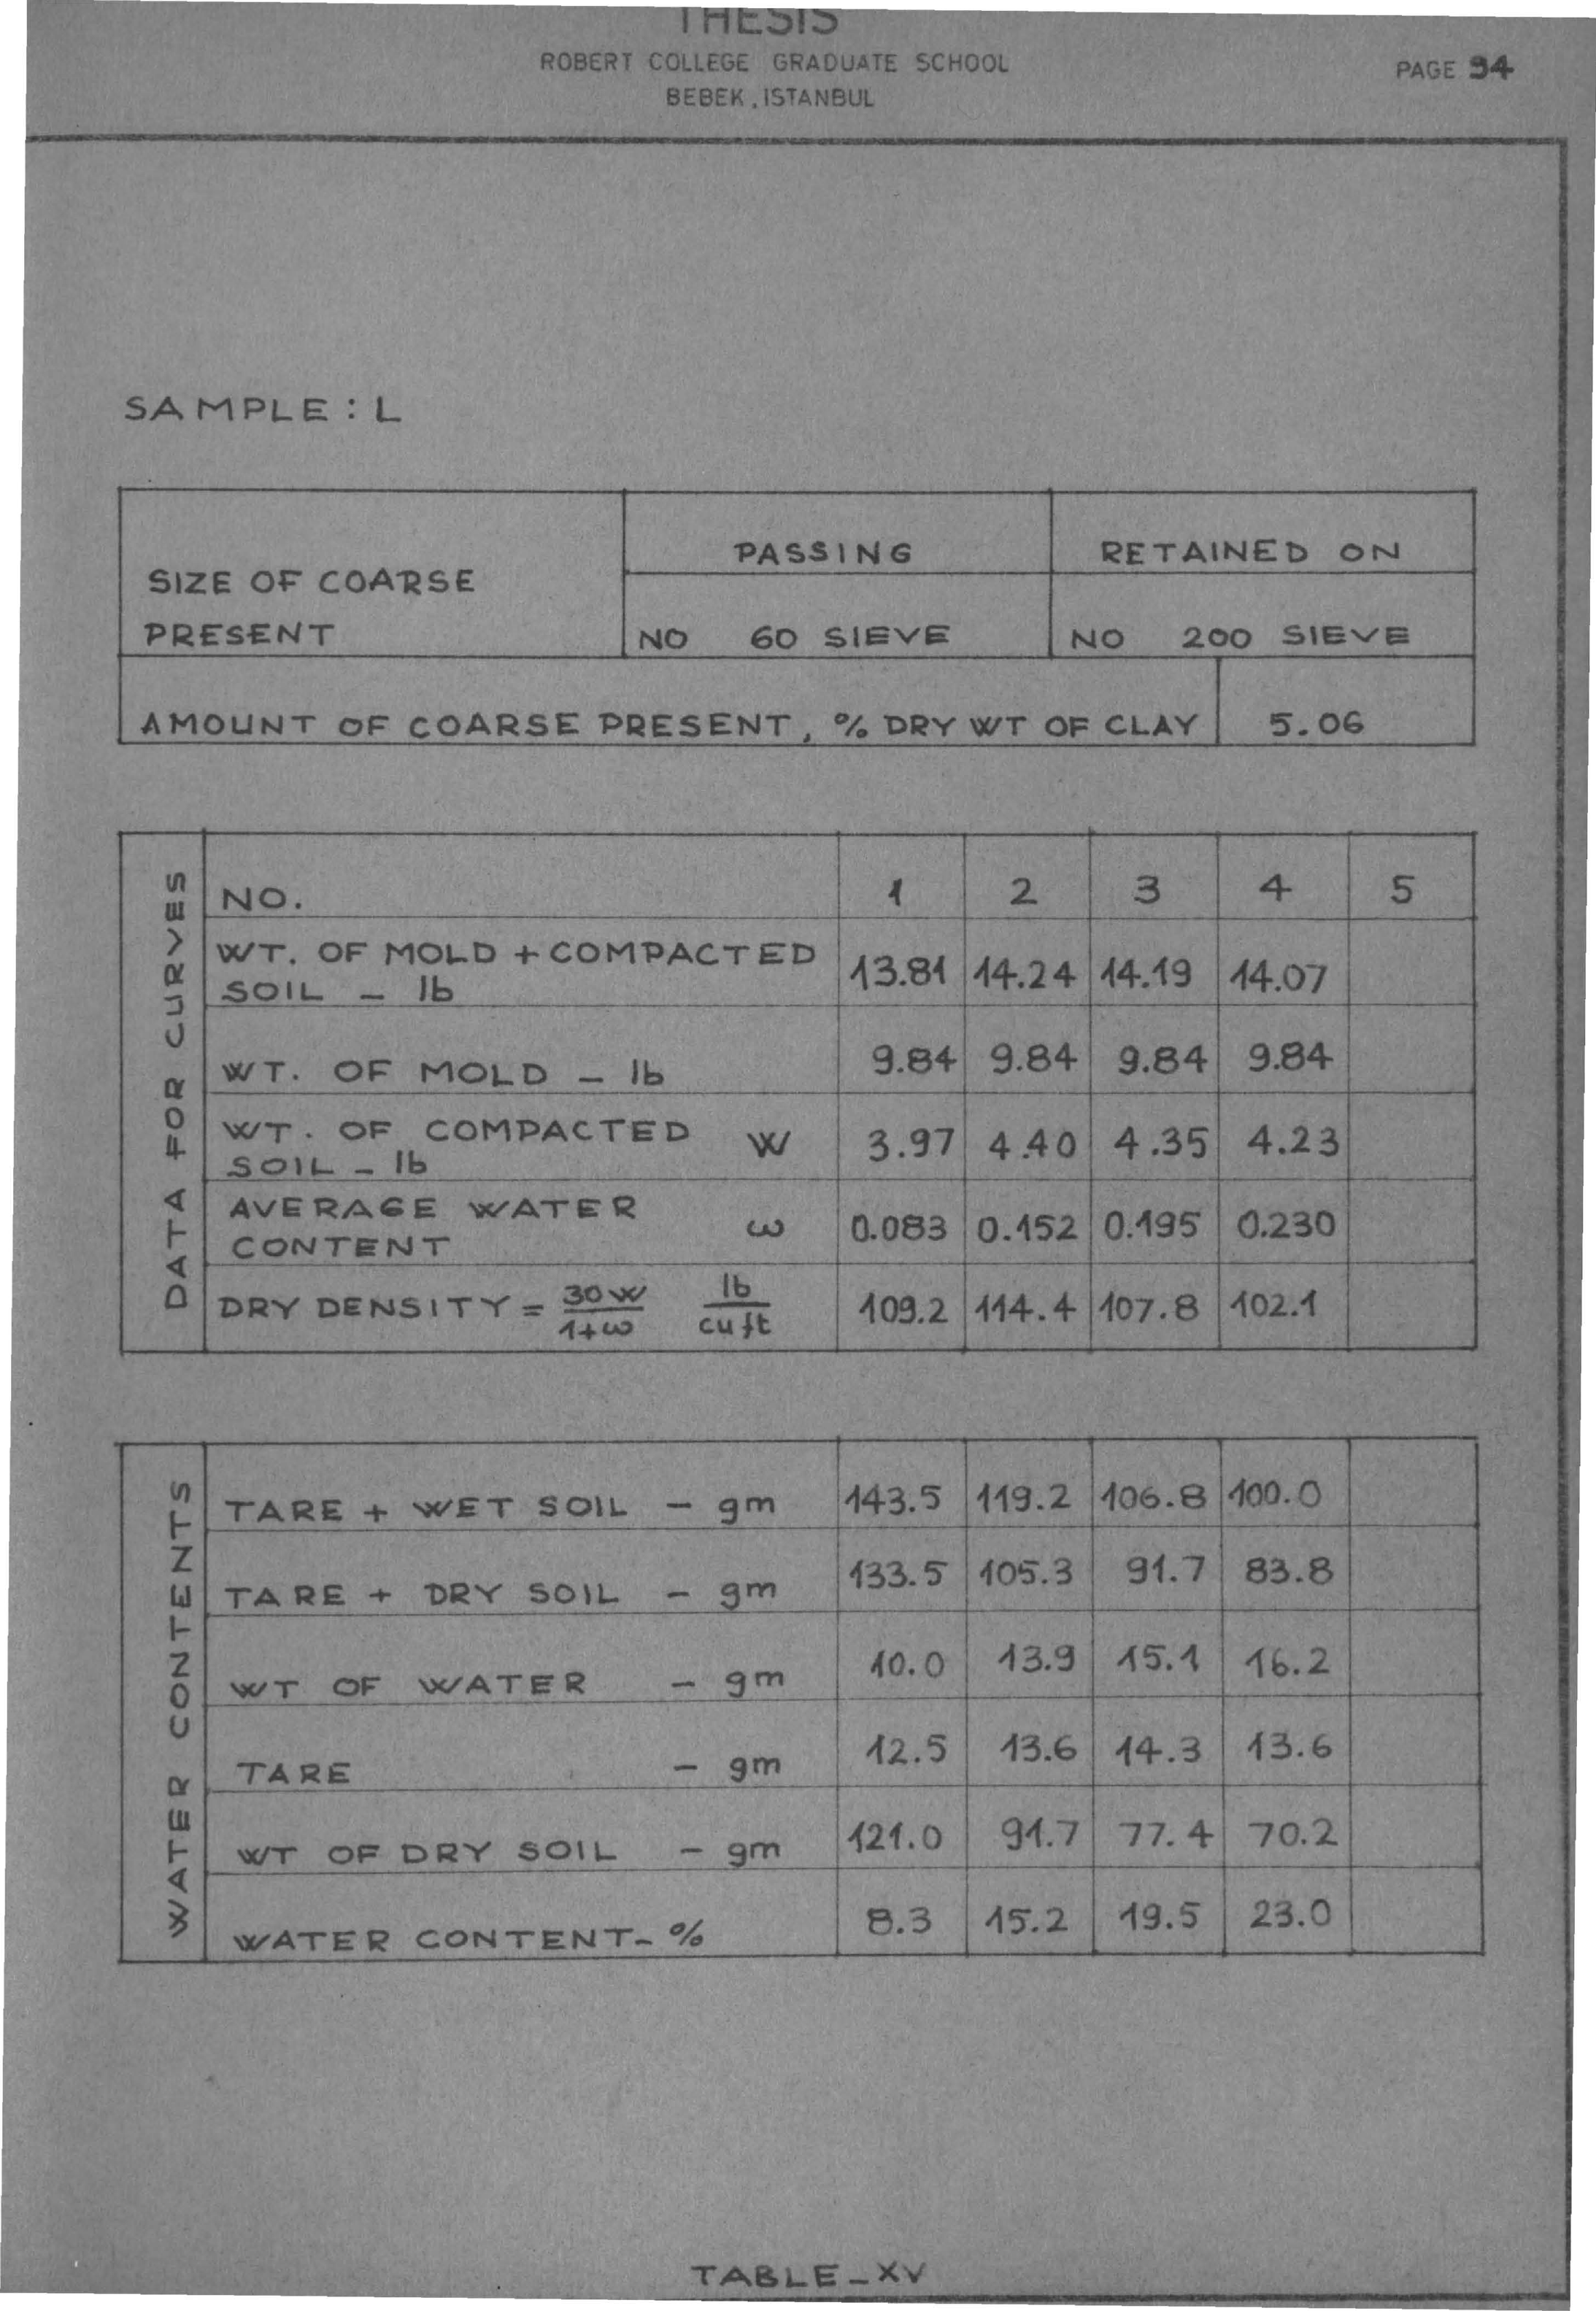 THESIS
ROBERT COLLEGE GRADUATE SCHOOL
BEBEK, ISTANBUL
PAGE 94
SAMPLE : L
SIZE OF COARSE PRESENT
PASSING
RETAINED ON
NO 60 SIEVE
NO 200 SIEVE
AMOUNT OF COARSE PRESENT, % DRY WT OF CLAY 5.06
DATA FOR CURVES
NO. 1 2 3 4 5
WT. OF MOLD + COMPACTED SOIL - lb 13.81 14.24 14.19 14.07
WT. OF MOLD - lb 9.84 9.84 9.84 9.84
WT. OF COMPACTED SOIL - lb W 3.97 4.40 4.35 4.23
AVERAGE WATER CONTENT ω 0.083 0.152 0.195 0.230
DRY DENSITY = 30W/1+ω lb/cu ft 109.2 114.4 107.8 102.1
WATER CONTENTS
TARE + WET SOIL - gm 143.5 119.2 106.8 100.0
TARE + DRY SOIL - gm 133.5 105.3 91.7 83.8
WT OF WATER - gm 10.0 13.9 15.1 16.2
TARE - gm 12.5 13.6 14.3 13.6
WT OF DRY SOIL - gm 121.0 91.7 77.4 70.2
WATER CONTENT - % 8.3 15.2 19.5 23.0
TABLE - XV